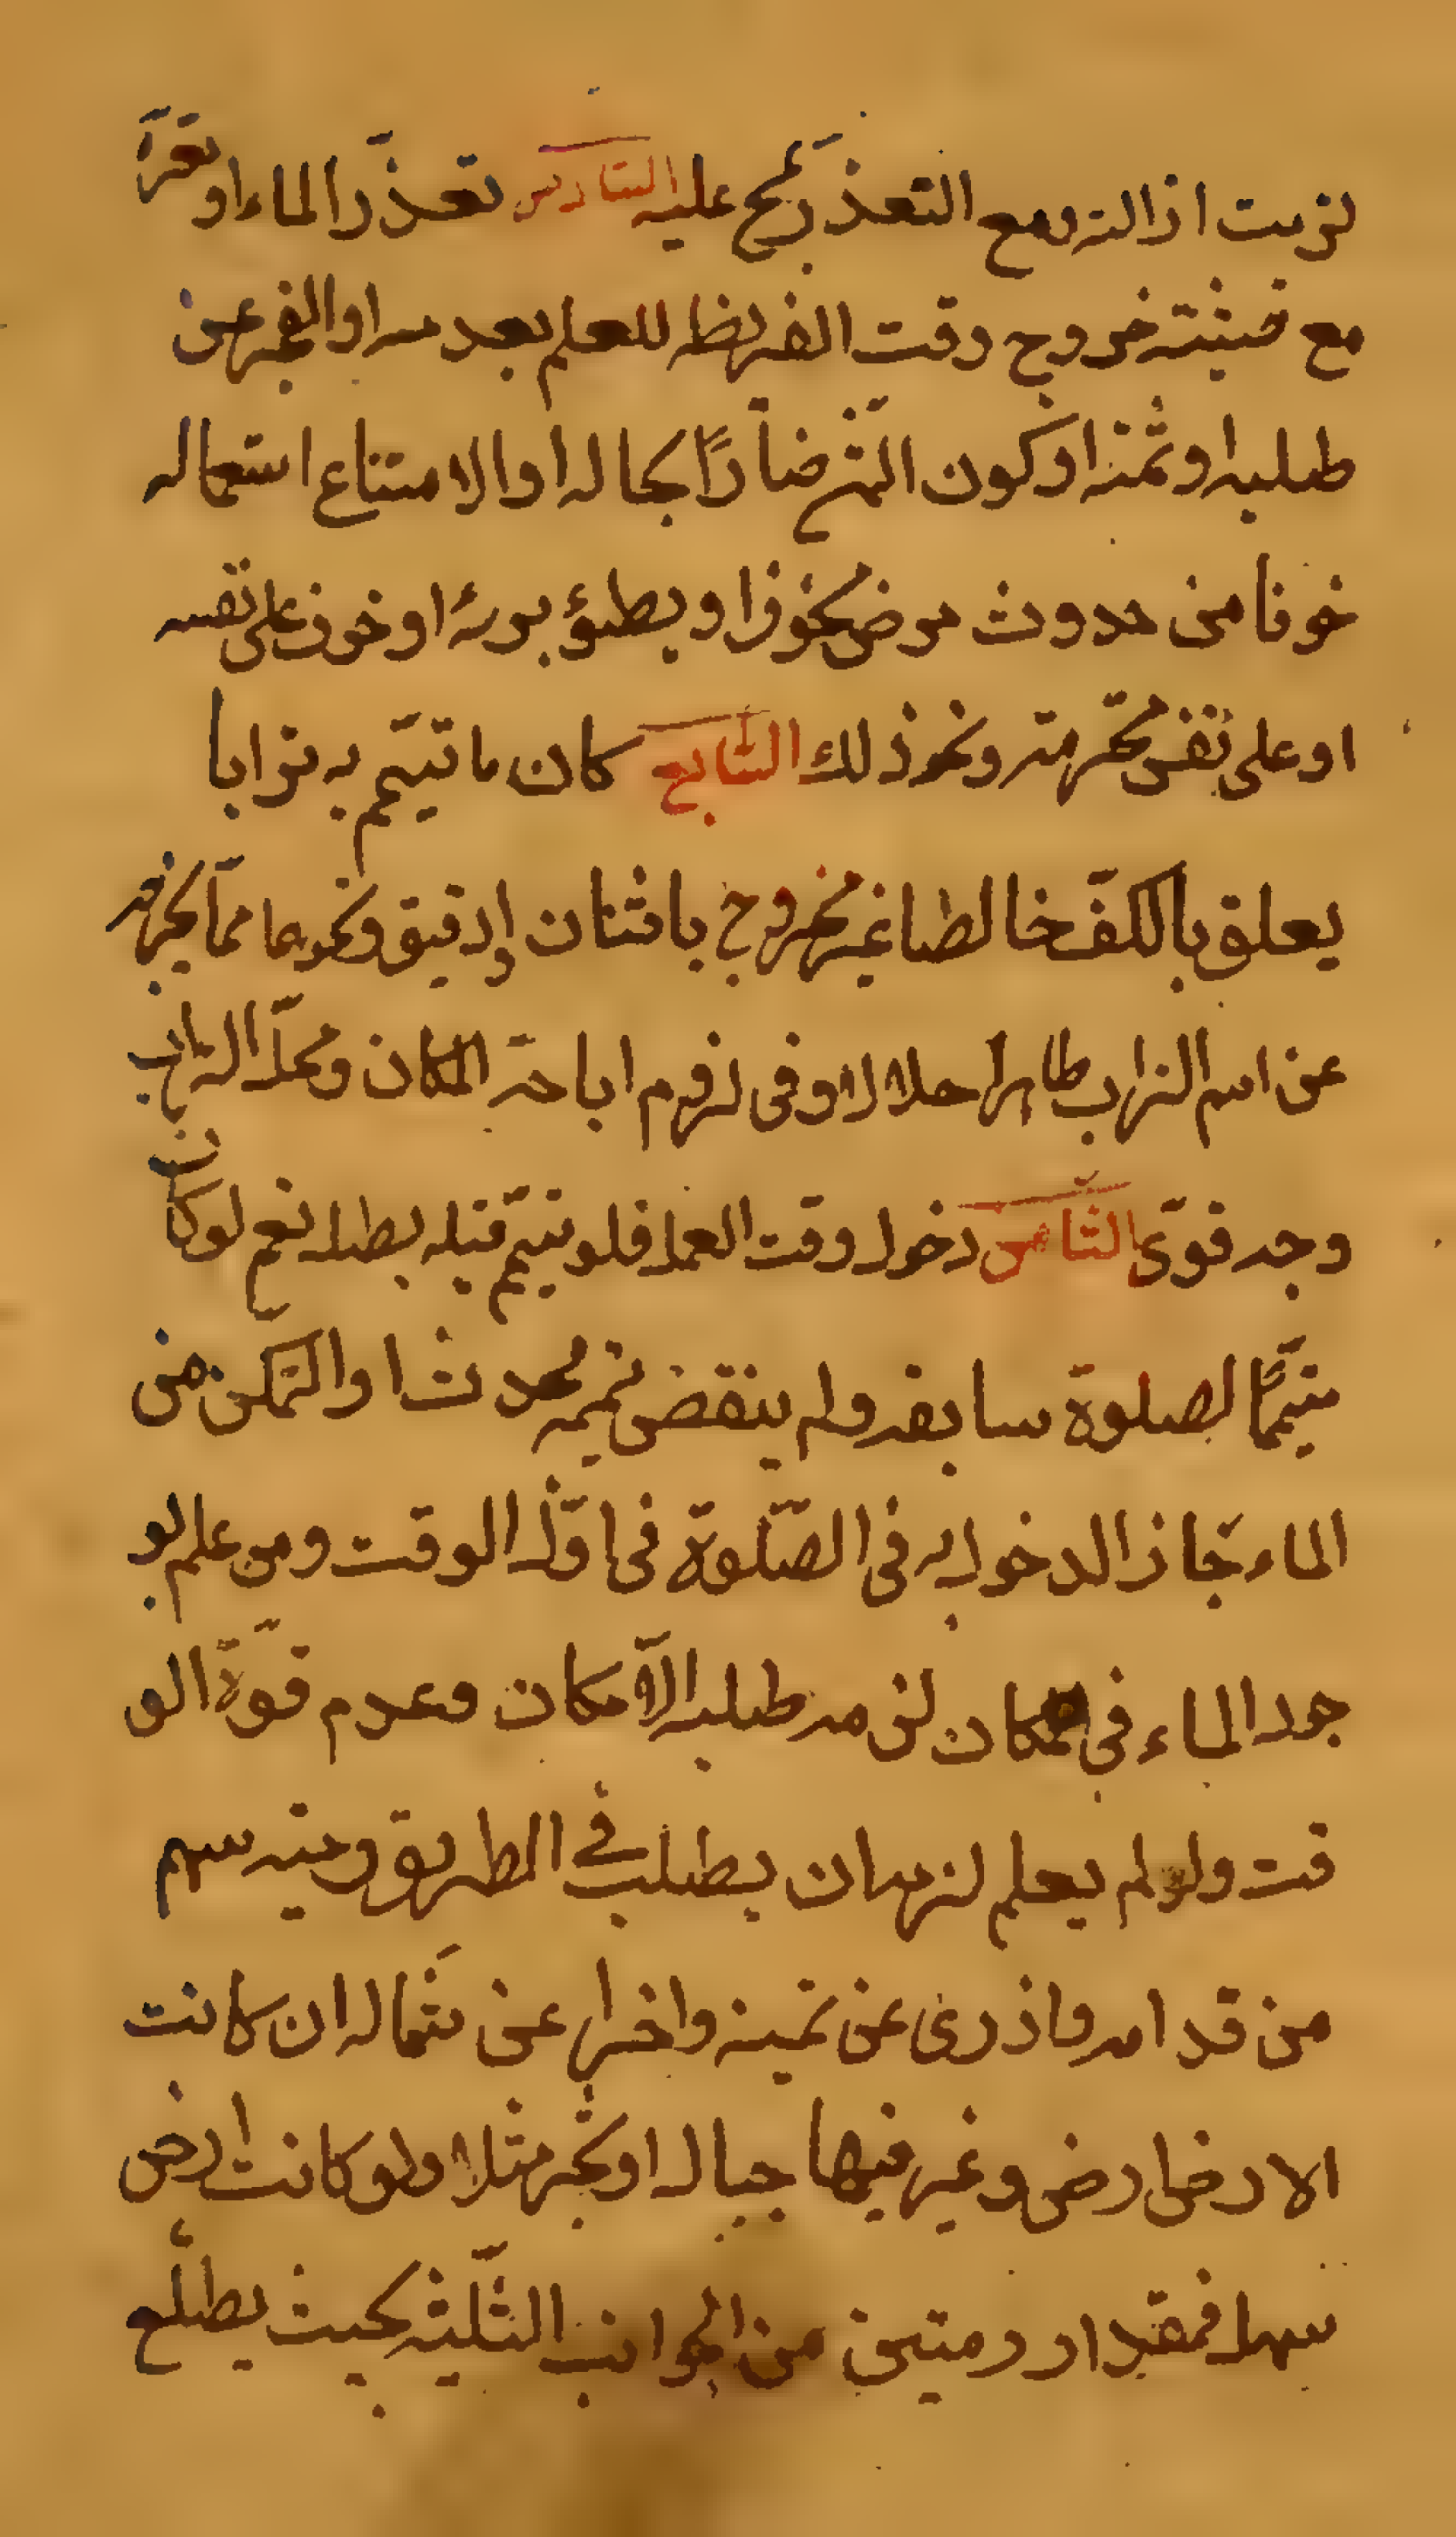 لزمت ازالته ومع التعذر يمسح عليه السّادس تعذّر الماء او تعذّره
مع خروج وقت الفريضه للعلم بعدمه او العجز عن
طلبه او ثمنه او كون الثّمن ضارًّا بحاله او الامتناع استعماله
خوفا من حدوث مرض مخوف او بطئو برئه او خوف على نفسه
او على نفس محترمته ونحو ذلك السّابع كان ما تيمّم به ترابا
يعلق بالكفّ خالصا غير ممزوج باشنان او دقيق ونحوها ممّا يخرجه
عن اسم التراب طاهرا حلالا وفى لزوم اباحة المكان ومحلّ التراب
وجه قوىّ الثّامن دخول وقت العمل فلو تيمّم قبله بطل نعم لو كان
متيمّمًا لصلوة سابقه ولم ينقض تيممه بحدث او التمكن من
الماء جاز الدخول به فى الصّلوة فى اوّل الوقت ومن علم بو
جود الماء فى مكان لزمه طلبه الّا مكان وعدم قوّة الو
قت ولو لم يعلم لزمه ان يطلب فى الطريق سهم
من قدامه واخرى عن يمينه واخرى عن شماله ان كانت
الارض ارض وعير فيها جبال او شجر مثلا ولو كانت ارض
سهل فمقدار رميتين من الجوانب الثّلثه بحيث يطلّع